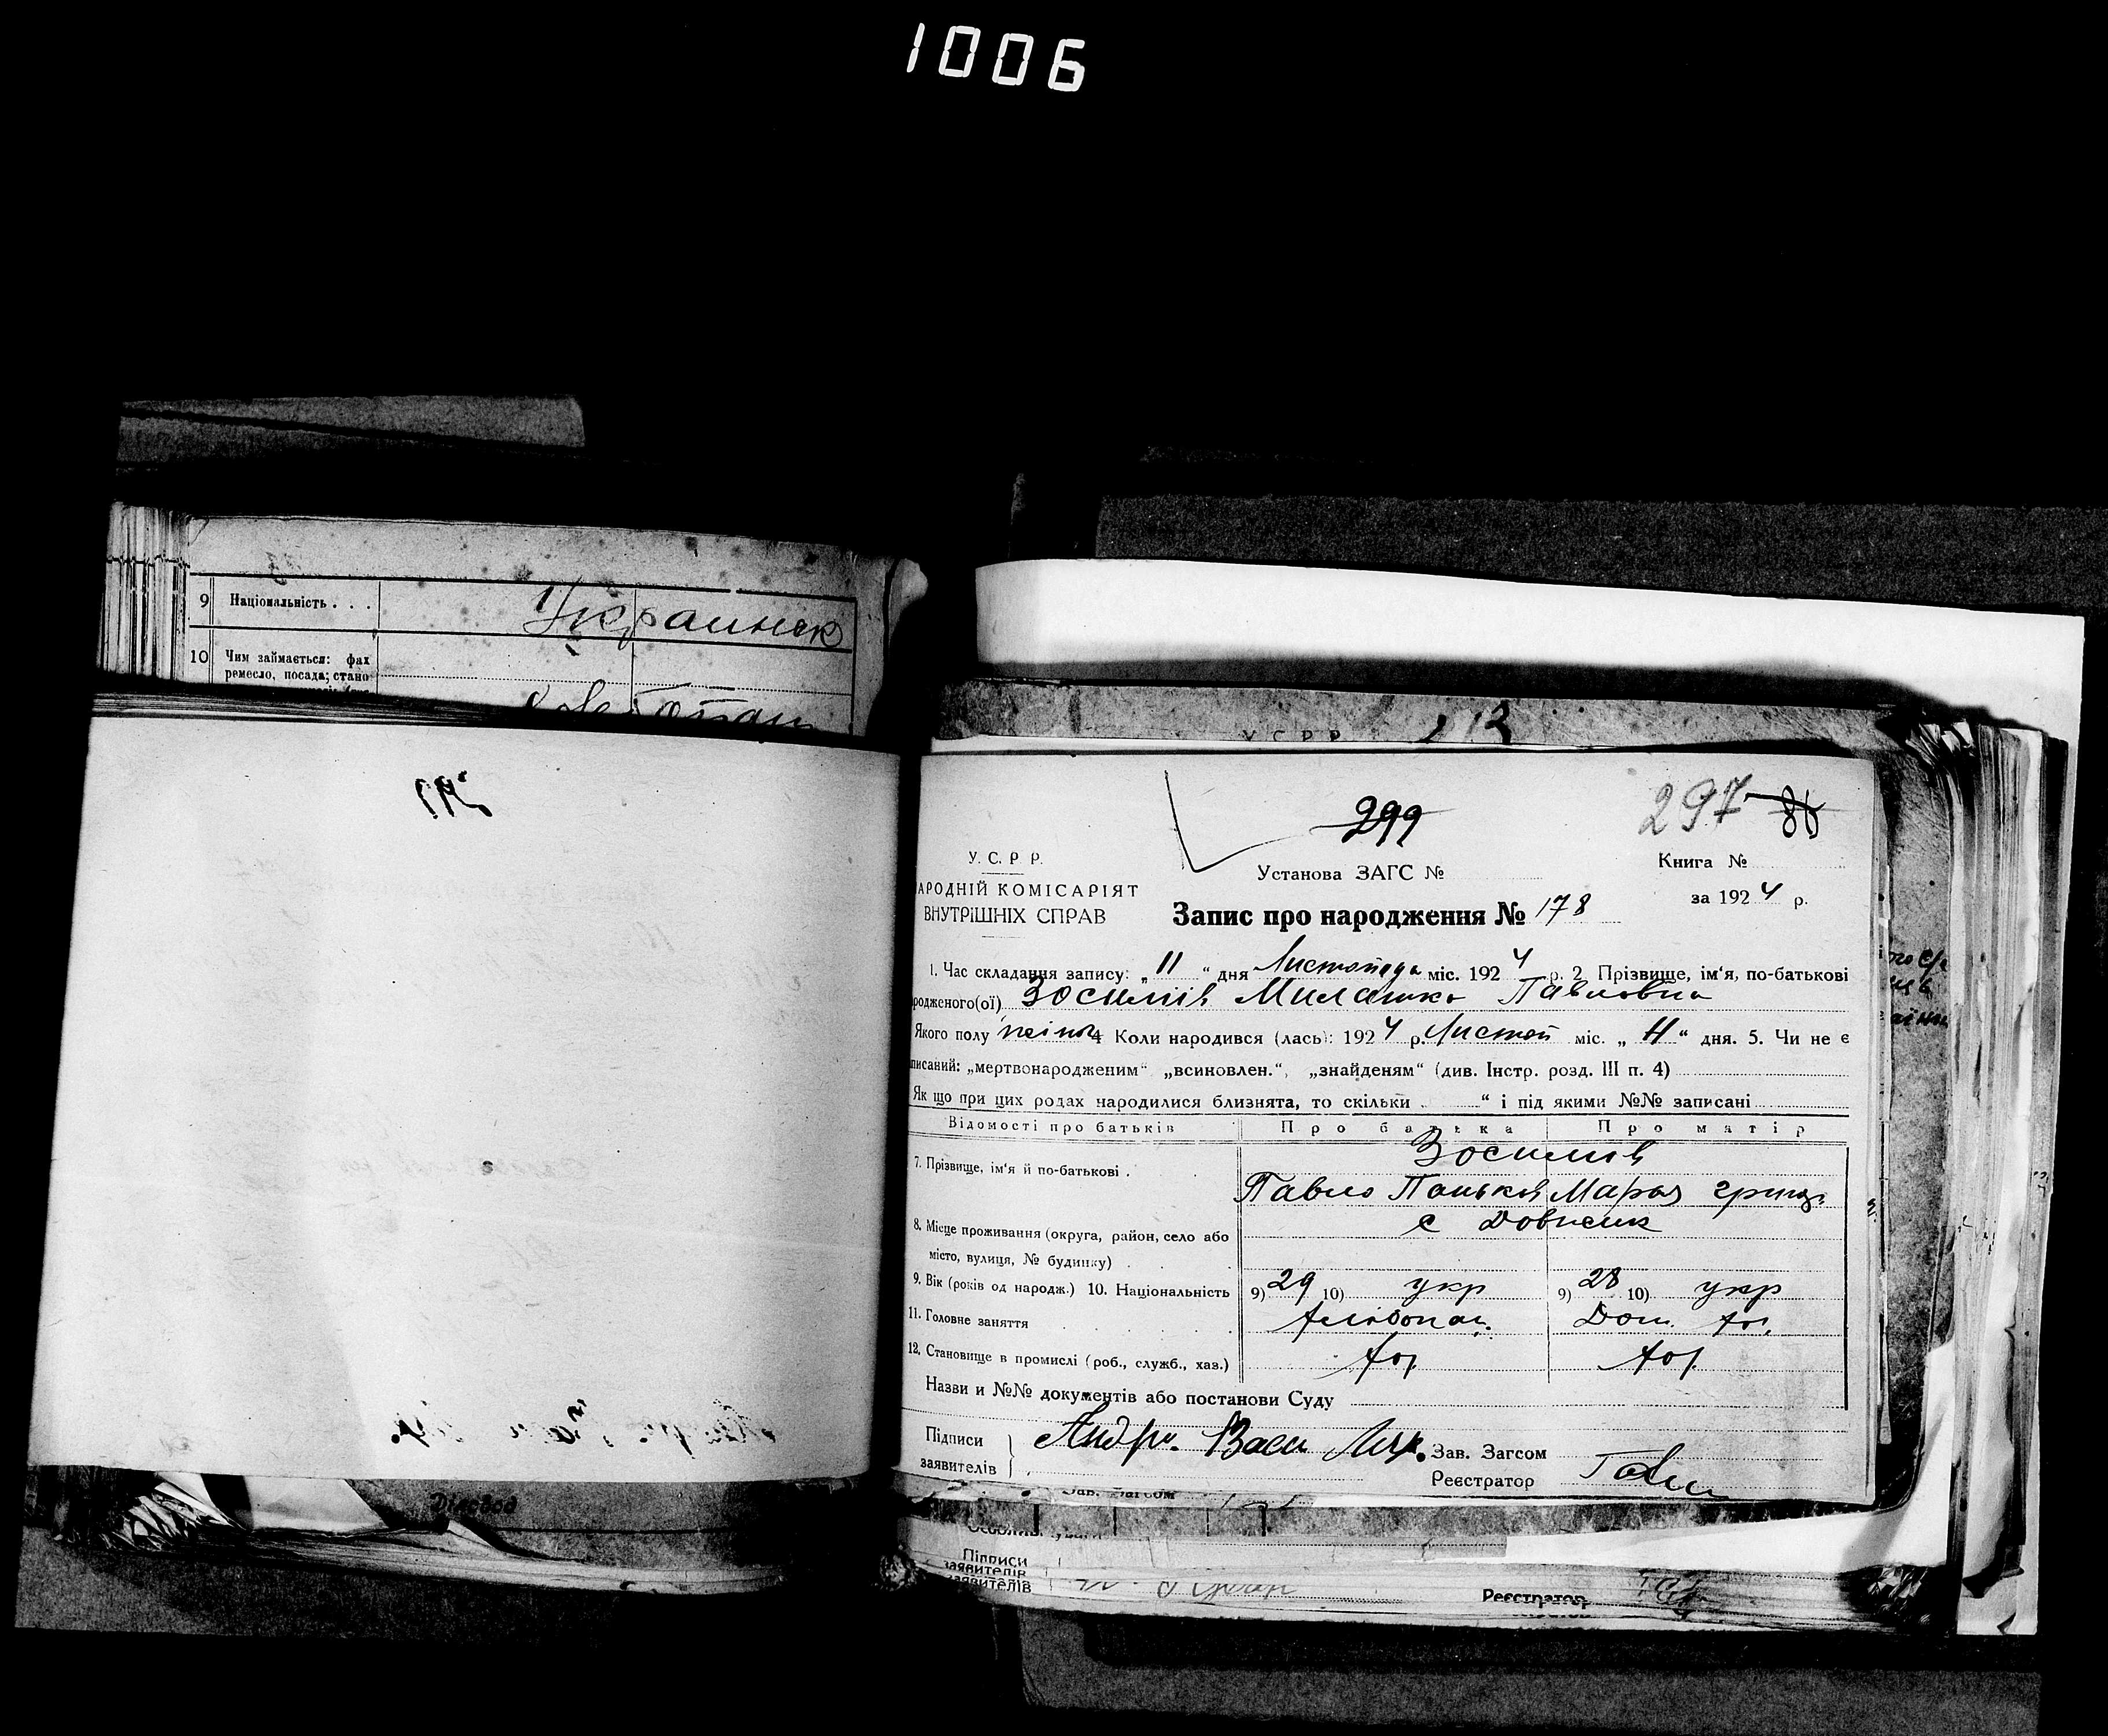 1006
9 Національність . . .
Украинск
10 Чим займається: фах
ремесло, посада; стано
Діловод
У С Р Р
299
297 86
У. С. Р. Р.
АРОДНІЙ КОМІСАРІЯТ
ВНУТРІШНІХ СПРАВ
Установа ЗАГС №
Книга №
за 1924 р.
Запис про народження № 178
1. Час складання запису: „11“ дня Листопада міс. 1924 р. 2. Прізвище, ім'я, по-батькові
родженого(ої) Зосимів Милашка Павловна
Якого полу 4 Коли народився (лась): 1924 р. Листоп міс. „11“ дня. 5. Чи не є
писаний: „мертвонародженим“ „всиновлен.“, „знайденям“ (див. Інстр. розд. III п. 4)
Як що при цих родах народилися близнята, то скільки “ і під якими №№ записані
Відомості про батьків Про батька Про матір
Зосимів
7. Прізвище, ім'я й по-батькові .
Павло Паньков Марья
8. Місце проживання (округа, район, село або
с Довжик
місто, вулиця, № будинку) .
9. Вік (років од народж.) 10. Національність 9) 29 10) укр 9) 28 10) укр
11. Головне заняття
Дом.
12. Становище в промислі (роб., служб., хаз.)
Назви и №№ документів або постанови Суду
Підписи
заявителів
Зав. Загсом
Реєстратор
Зав. Загсом
Підписи
заявителів
заявителів
Реєстратор